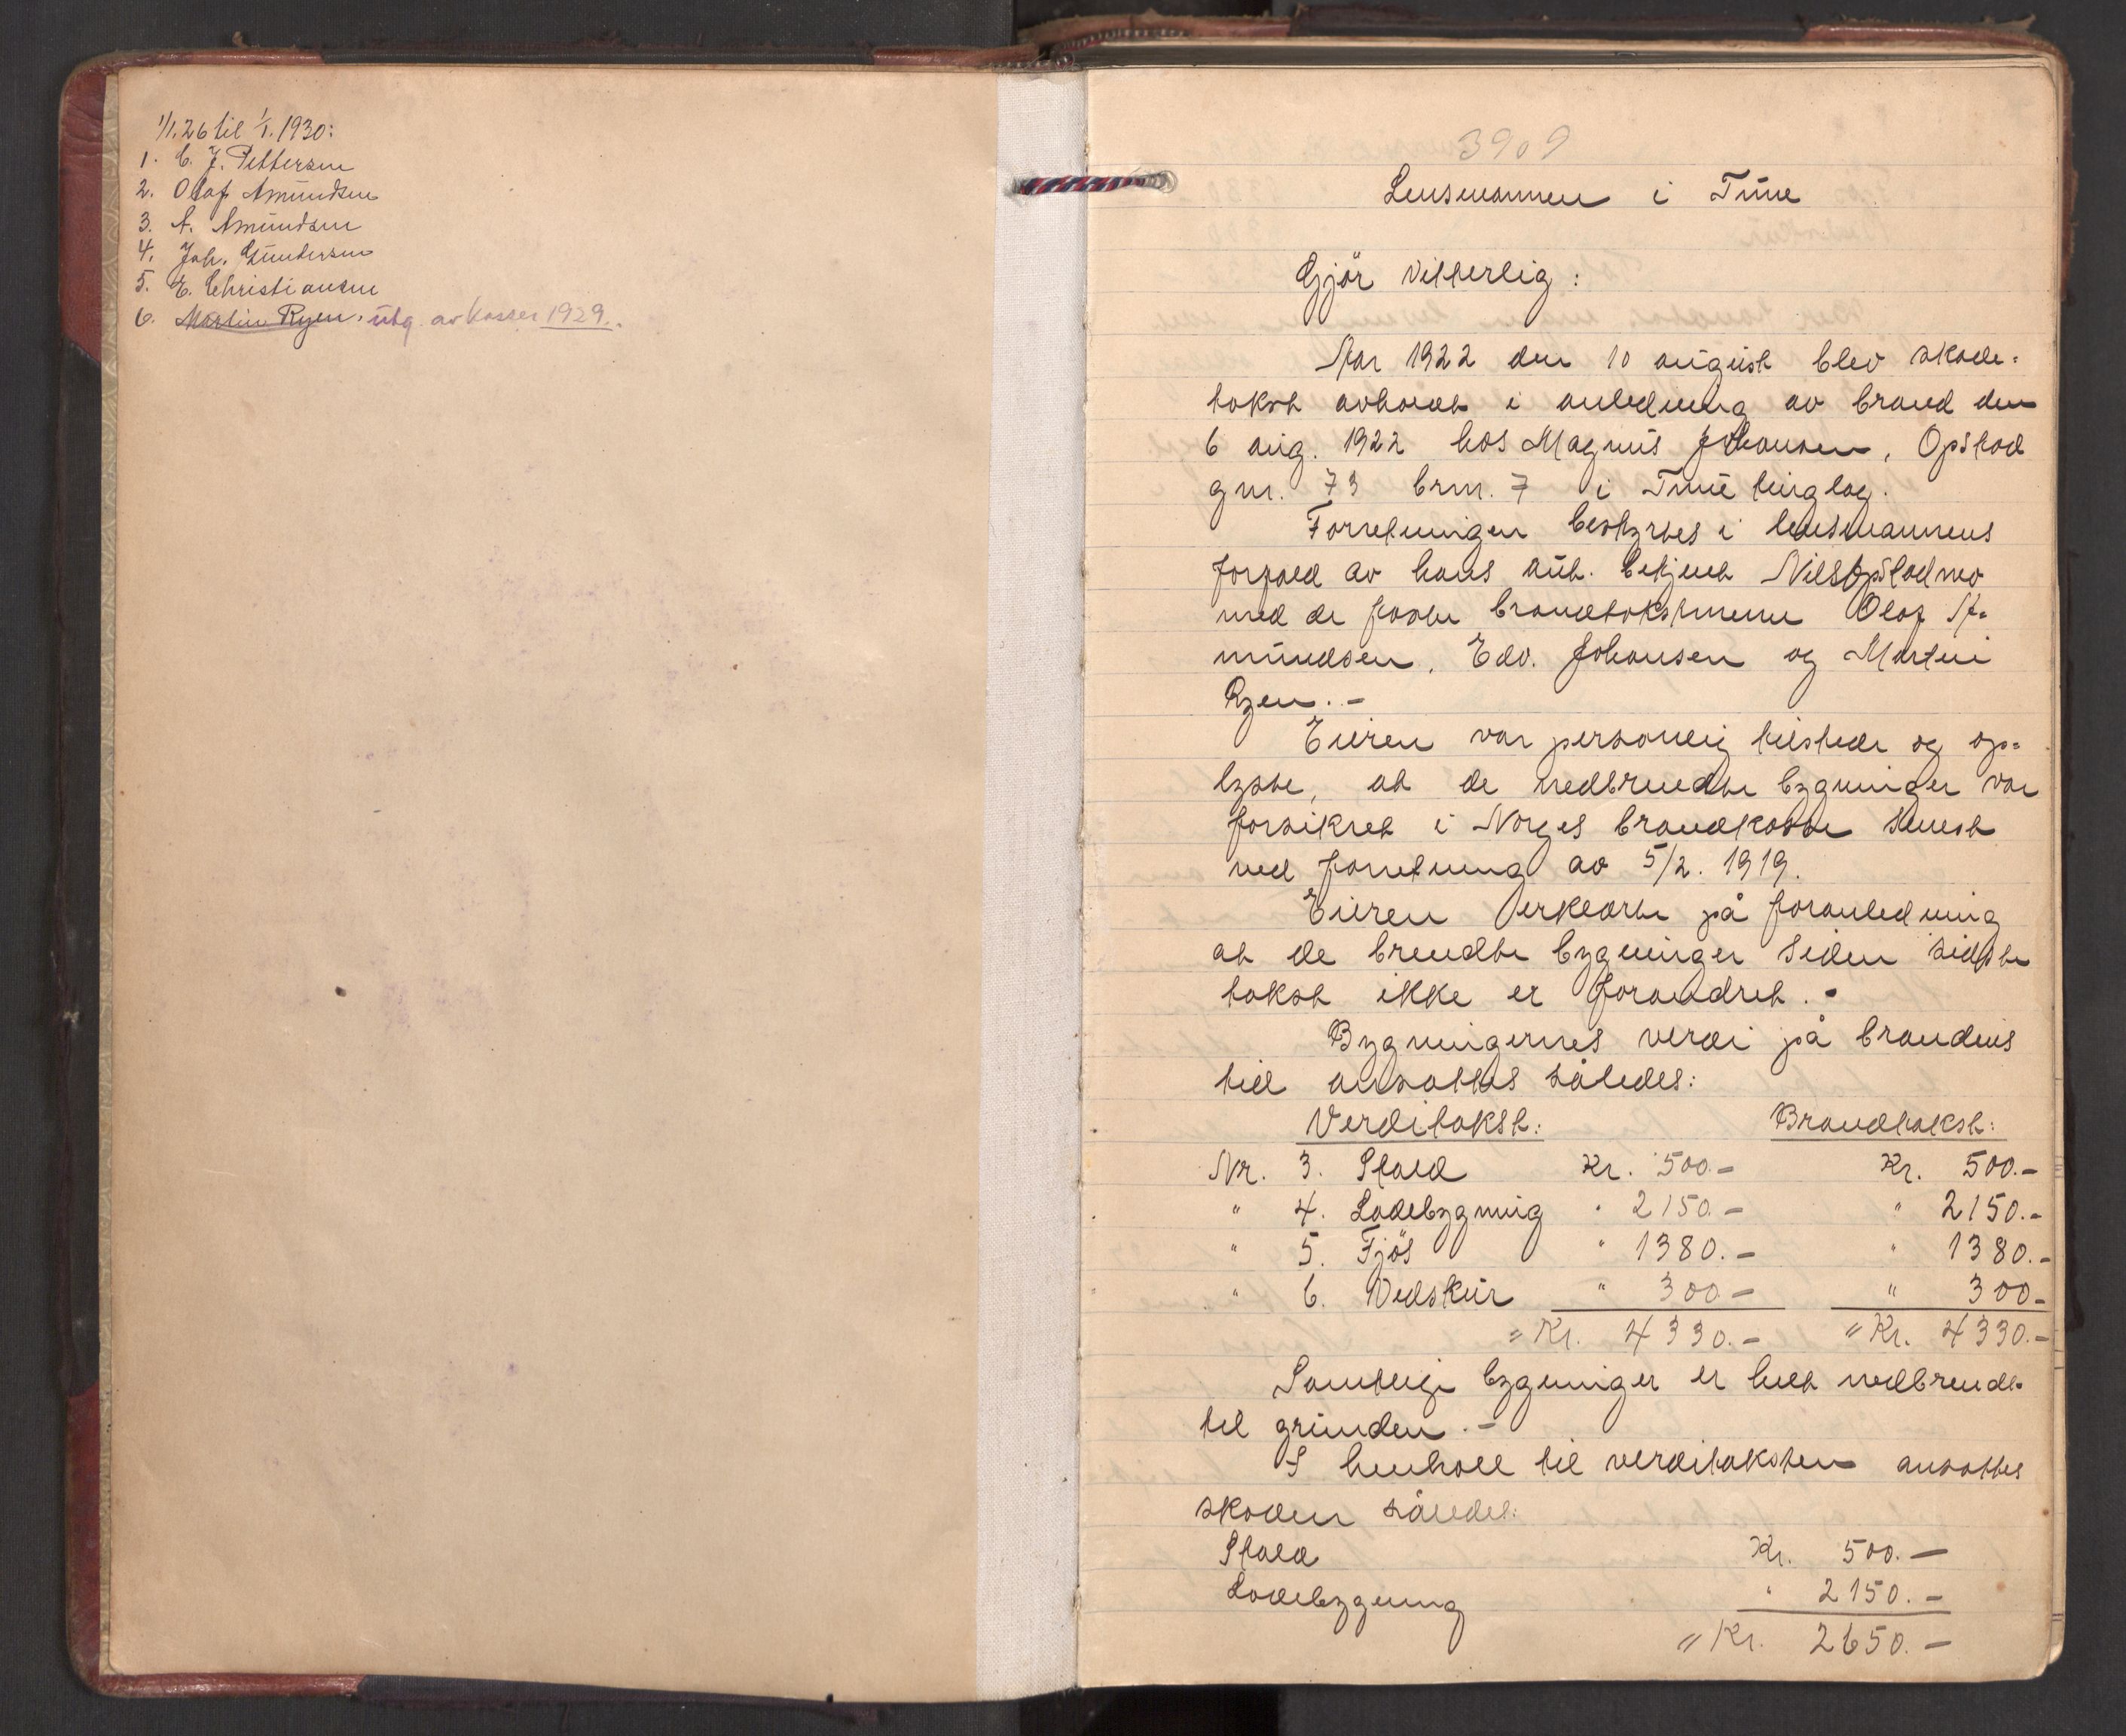 1/1.26 til 1/1.1930:
1. C. J. Pettersen
2. Olaf Amundsen
3. A. Amundsen
4. Joh. Gundersen
5. E. Christiansen
6. Martin Ryen. utg. av kasser 1929.
3909
Lensmannen i Tune
Gjør vitterlig:
Aar 1922 den 10 august blev skade-
takst avholdt i anledning av brand den
6 aug. 1922 hos Magnus Johansen, Opstad
gnr. 73 brnr. 7 i Tune tinglag.
Forretningen bestyrtes i lensmannens
forfald av hans aut. betjent Nils Opstad
med de faste brandtakstmenn Olaf A-
mundsen, Edv. Johansen og Martin
Ryen.-
Eieren var personlig tilstede og op-
lyste, at de nedbrendte bygninger var
forsikret i Norges brandkasse senest
ved forretning av 5/2. 1919.
Eieren erklærte på foranledning
at de brendte bygninger siden sidste
takst ikke er forandret.-
Bygningernes verdi på brandens
tid ansattes således:
Verditakst: Brandtakst:
Nr. 3. Stald Kr. 500.- Kr. 500.-
" 4. Ladebygning " 2150.- " 2150.-
" 5. Fjøs " 1380.- " 1380.-
" 6. Vedskur " 300- " 300-
= Kr. 4330.- = Kr. 4330.-
Samtlige bygninger er helt nedbrendt
til grunden.-
I henhold til verditaksten ansattes
skaden således:
Stald Kr. 500.-
Ladebygning " 2150.-
= Kr. 2650.-